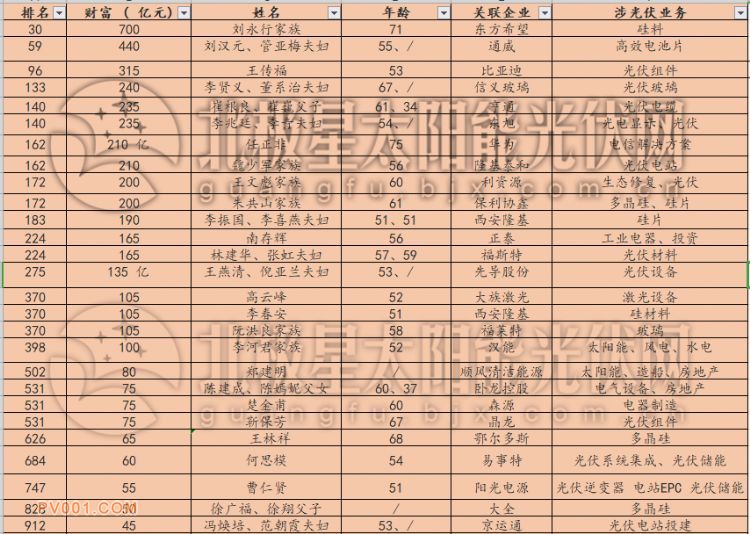 排名 财富 ( 亿元) 姓名 年龄 关联企业 涉光伏业务
30 700 刘永行家族 71 东方希望 硅料
59 440 刘汉元、管亚梅夫妇 55、/ 通威 高效电池片
96 315 王传福 53 比亚迪 光伏组件
133 240 李贤义、董系治夫妇 67、/ 信义玻璃 光伏玻璃
140 235 崔根良、崔巍父子 61、34 亨通 光伏电缆
140 235 李兆廷、李青夫妇 54、/ 东旭 光电显示、光伏
162 210 亿 任正非 75 华为 电信解决方案
162 210 寇少军家族 56 隆基泰和 光伏电站
172 200 王文彪家族 60 利资源 生态修复、光伏
172 200 朱共山家族 61 保利协鑫 多晶硅、硅片
183 190 李振国、李喜燕夫妇 51、51 西安隆基 硅片
224 165 南存辉 56 正泰 工业电器、投资
224 165 林建华、张虹夫妇 57、59 福斯特 光伏材料
275 135 亿 王燕清、倪亚兰夫妇 53、/ 先导股份 光伏设备
370 105 高云峰 52 大族激光 激光设备
370 105 李春安 51 西安隆基 硅材料
370 105 阮洪良家族 58 福莱特 玻璃
398 100 李河君家族 52 汉能 太阳能、风电、水电
502 80 郑建明 / 顺风清洁能源 太阳能、造船、房地产
531 75 陈建成、陈嫣妮父女 60、37 卧龙控股 电气设备、房地产
531 75 楚金甫 60 森源 电器制造
531 75 靳保芳 67 晶龙 光伏组件
626 65 王林祥 68 鄂尔多斯 多晶硅
684 60 何思模 54 易事特 光伏系统集成、光伏储能
747 55 曹仁贤 51 阳光电源 光伏逆变器 电站EPC 光伏储能
828 50 徐广福、徐翔父子 / 大全 多晶硅
912 45 冯焕培、范朝霞夫妇 53、/ 京运通 光伏电站投建
北极星太阳能光伏网
guangfu.bjx.com.cn
北极星太阳能光伏网
guangfu.bjx.com.cn
PV001.COM